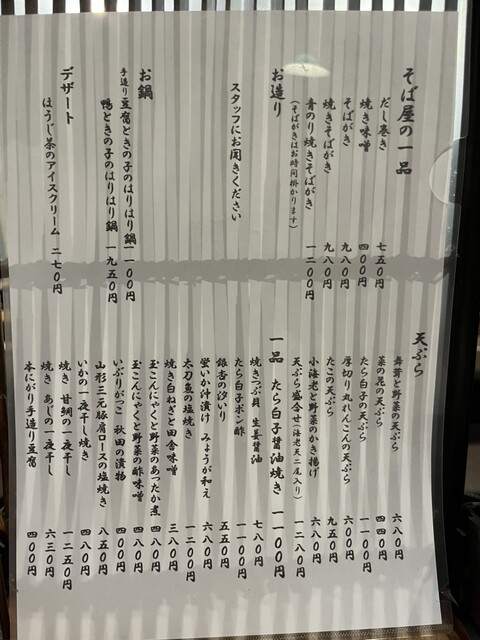 そば屋の一品
だし巻き 七五〇円
焼き味噌 四〇〇円
そばがき 九八〇円
焼きそばがき 九八〇円
青のり焼きそばがき 一二〇〇円
(そばがきはお時間掛かります)
お造り
スタッフにお聞きください
お鍋
手造り豆腐ときの子のはりはり鍋 一一〇〇円
鴨ときの子のはりはり鍋 一九五〇円
デザート
ほうじ茶のアイスクリーム 二七〇円
天ぷら
舞茸と野菜の天ぷら 六八〇円
菜の花の天ぷら 四四〇円
たら白子の天ぷら 一一〇〇円
厚切り丸れんこんの天ぷら 六〇〇円
たこの天ぷら 九五〇円
小海老と野菜のかき揚げ 六八〇円
天ぷら盛合せ(海老天二尾入り) 一二八〇円
一品 たら白子醤油焼き 一一〇〇円
焼きつぶ貝 生姜醤油 七八〇円
たら白子ポン酢 一一〇〇円
銀杏の汐いり 五五〇円
蛍いか汁漬け みょうが和え 六八〇円
太刀魚の塩焼き 一二〇〇円
焼き白ねぎと田舎味噌 三八〇円
玉こんにゃくと野菜のあったか煮 四八〇円
玉こんにゃくと野菜の酢味噌 四八〇円
いぶりがっこ 秋田の漬物 四〇〇円
山形三元豚肩ロースの塩焼き 八五〇円
いかの一夜干し焼き 四八〇円
焼き 甘鯛の一夜干し 一二五〇円
焼き あじの一夜干し 六三〇円
本にがり手造り豆腐 四〇〇円